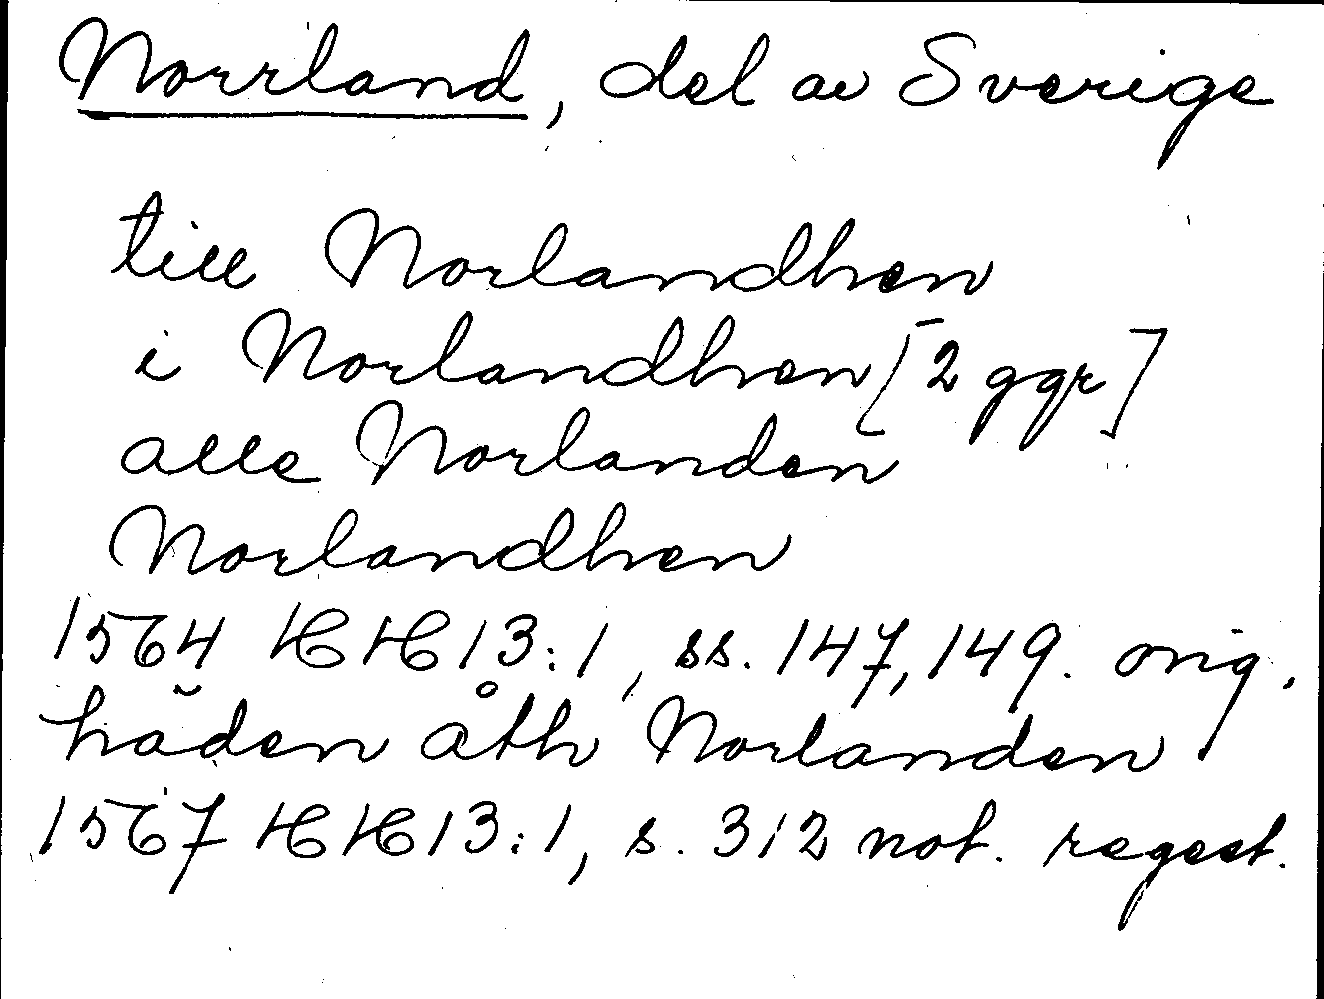 Norrland, del av Sverige
till Norlandhen
i Norlandhen [2 ggr]
alle Norlanden
Norlandhen
1564 HH13:1, ss. 147, 149. orig.
häden åth Norlanden
1567 HH13:1, s. 312 not. regest.